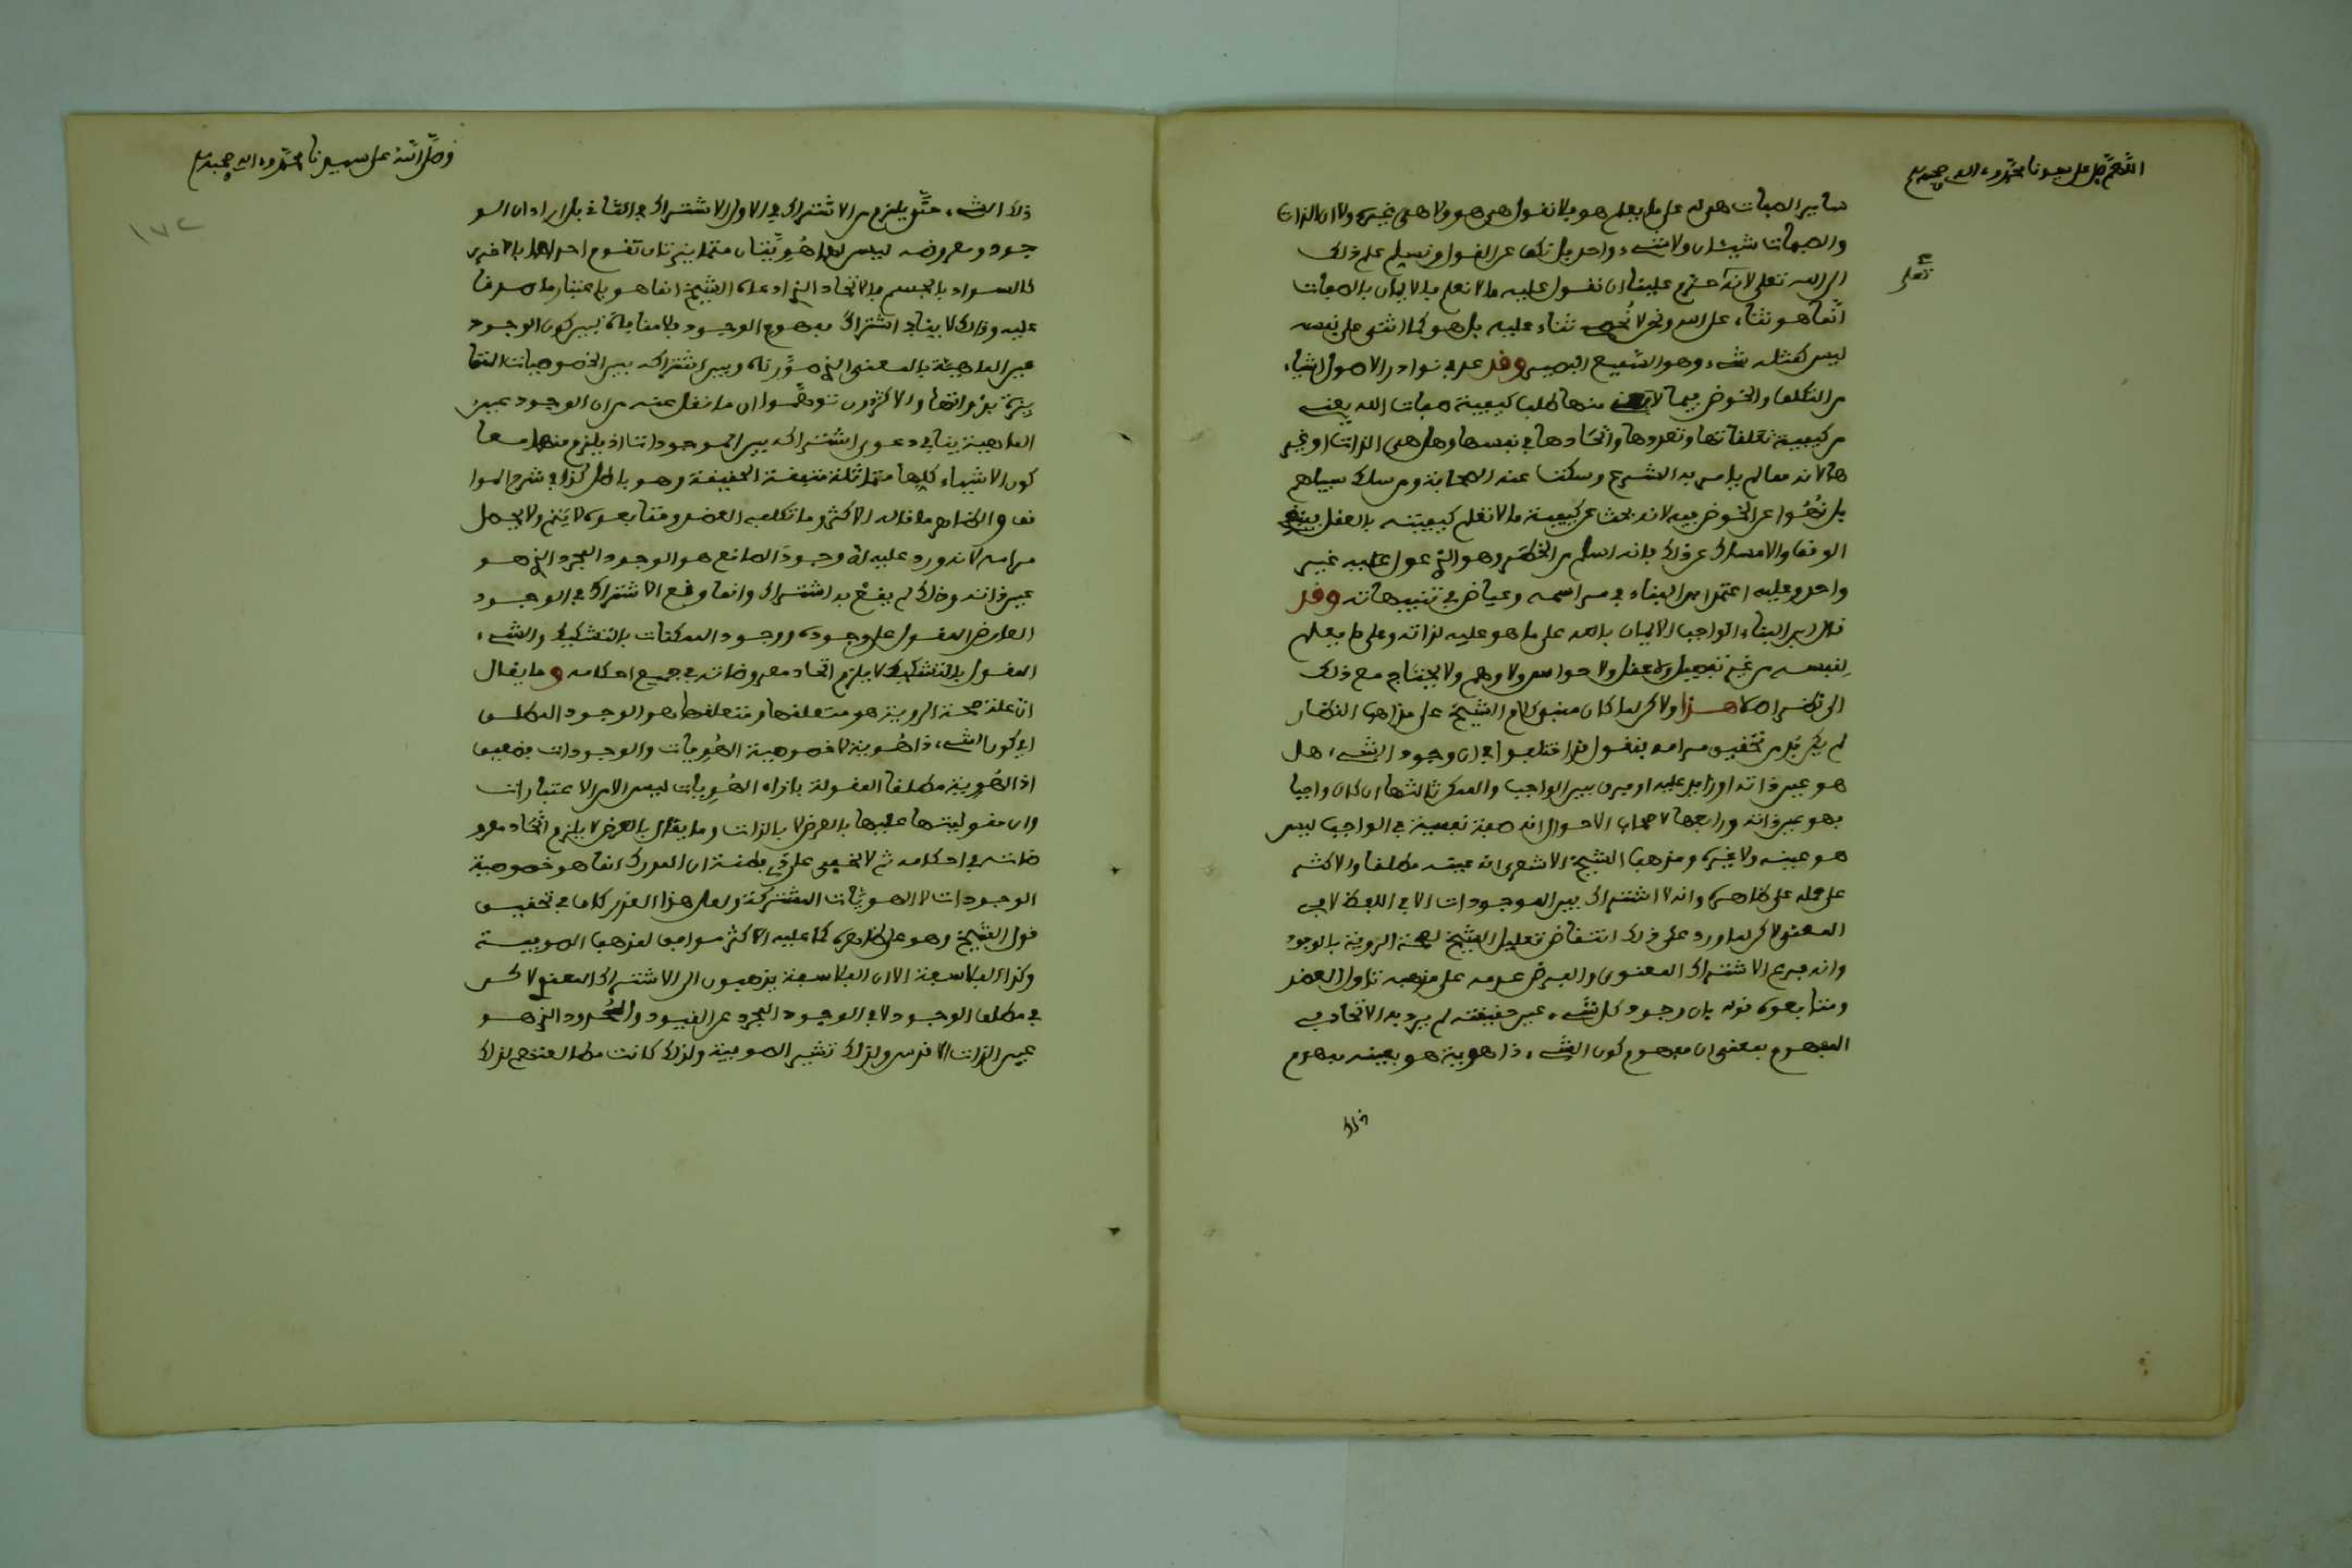 اللهم صل على سيدنا محمد وءاله وصحبه
ساير الصفات هو له على ما يعلم هو فلا نقول هي هو ولا هي غيره ولا ان الذات
والصفات شيئان ولا شيء واحد بل نكف عن القول ونسلم علم ذلك
الى الله تعلى لانه حرم علينا ان نقول عليه ما لا نعلم فالايمان بالصفات
تعلى
انما هو ثناء على الله ونحن لا نحصي ثناء عليه بل هو كما اثنى على نفسه
ليس كمثله شيء وهو السميع البصير وقد عد في نوادر الاصول اشياء
من التكلف والخوض فيما لا يعني منها طلب كيفية صفات الله يعني
من كيفية تعلقاتها وتعددها واتحادها في نفسها وهل هي الذات او غير
ها لانه مما لم يامر به الشرع وسكت عنه الصحابة ومن سلك سبيلهم
بل نهوا عن الخوض فيه لانه بحث عن كيفية ما لا تعلم كيفيته بالعقل
الوقف والامساك عن ذلك فانه اسلم من الخطر وهو الذي عول عليه غير
واحد وعليه اعتمد ابن البناء في مراسمه وعياض في تنبيهاته وقد
قال ابن البناء الواجب الايمان بالله على ما هو عليه لذاته وعلى ما يعلم
لنفسه من غير تفصيل ولا عقل ولا حواس ولا وهم ولا يحتاج مع ذلك
الى نظر اصلا هذا ولاكن لما كان مبنى كلام الشيخ على مذاهب النظار
لم يكن بد من تحقيق مرامه فنقول قد اختلفوا في ان وجود الشيء هل
هو عين ذاته او زايد عليه او فرق بين الواجب والممكن ثالثها ان كان واجبا
فهو عين ذاته ورابعها لاصحاب الاحوال انه صفة نفسية في الواجب ليس
هو عينه ولا غيره ومذهب الشيخ الاشعري انه عينه مطلقا والاكثر
على حمله على ظاهره وانه لا اشتراك بين الموجودات الا في اللفظ لا في
المعنى لاكن لما ورد على ذلك انتقاض تعليل الشيخ لصحة الروية بالوجود
وانه فرع الاشتراك المعنوي والفرض عدمه على مذهبه تاول العضد
ومتابعوه قوله بان وجود كل شيء عين حقيقته لم يرد به الاتحاد في
المفهوم بمعنى ان مفهوم كون الشيء ذا هوية هو بعينه مفهوم
ذلك
وصلى الله على سيدنا محمد وءاله وصحبه
١٧٢
ذلك الشيء حتى يلزم من الاشتراك في الاول الاشتراك في الثاني بل اراد ان الو
جود ومعروضه ليس لهما هويتان متمايزتان تقوم احداهما بالاخرى
كالسواد بالجسم فالاتحاد الذي ادعاه الشيخ انما هو باعتبار ما صدقا
عليه وذلك لا ينافي اشتراك مفهوم الوجود فلا منافاة بين كون الوجود
عين الماهية بالمعنى الذي صورناه وبين اشتراكه بين الخصوصيات المتما
يزة بذواتها والاكثرون توهموا ان ما نقل عنه من ان الوجود عين
الماهية ينافي دعوى اشتراكه بين الموجودات اذ يلزم منهما معا
كون الاشياء كلها متماثلة متفقة الحقيقة وهو باطل كذا في شرح الموا
قف والظاهر ما قاله الاكثر وما تكلفه العضد ومتابعوه لا يتم ولا يحصل
مرامه لانه ورد عليه ان وجود الصانع هو الوجود المجرد الذي هو
عين ذاته وذلك لم يقع به اشتراك وانما وقع الاشتراك في الوجود
العارض المقول على وجوده ووجود الممكنات بالتشكيك والشيء
المقول بالتشكيك لا يلزم اتحاد معروضاته في جميع احكامه وما يقال
ان علة صحة الروية هو متعلقها ومتعلقها هو الوجود المطلق
اي كون الشيء ذا هوية لا خصوصية الهويات والوجودات فضعيف
اذ الهوية مطلقا المقولة بازاء الهويات ليس الامر الا اعتباريات
وان مقوليتها عليها بالعرض لا بالذات وما يقال بالعرض لا يلزم اتحاد معرو
ضاته في احكامه ثم لا يخفى على ذي فطنة ان المدرك انما هو خصوصية
الوجودات لا الهويات المشتركة ولعل هذا القدر كاف في تحقيق
قول الشيخ وهو على ظاهره كما عليه الاكثر موافق لمذهب الصوفية
وكذا الفلاسفة الا ان الفلاسفة يذهبون الى الاشتراك المعنوي لاكن
في مطلق الوجود لا في الوجود المجرد عن القيود والحدود الذي هو
عين الذات الاقدس ولذلك تشير الصوفية ولذلك كانت مطالعتهم لذلك